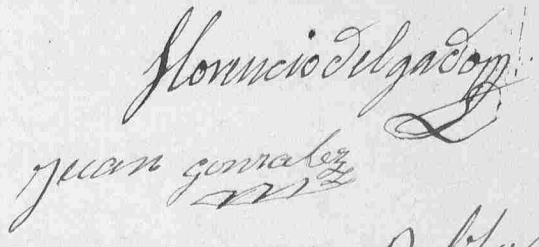 Florencio delgado
Juan gonzalez